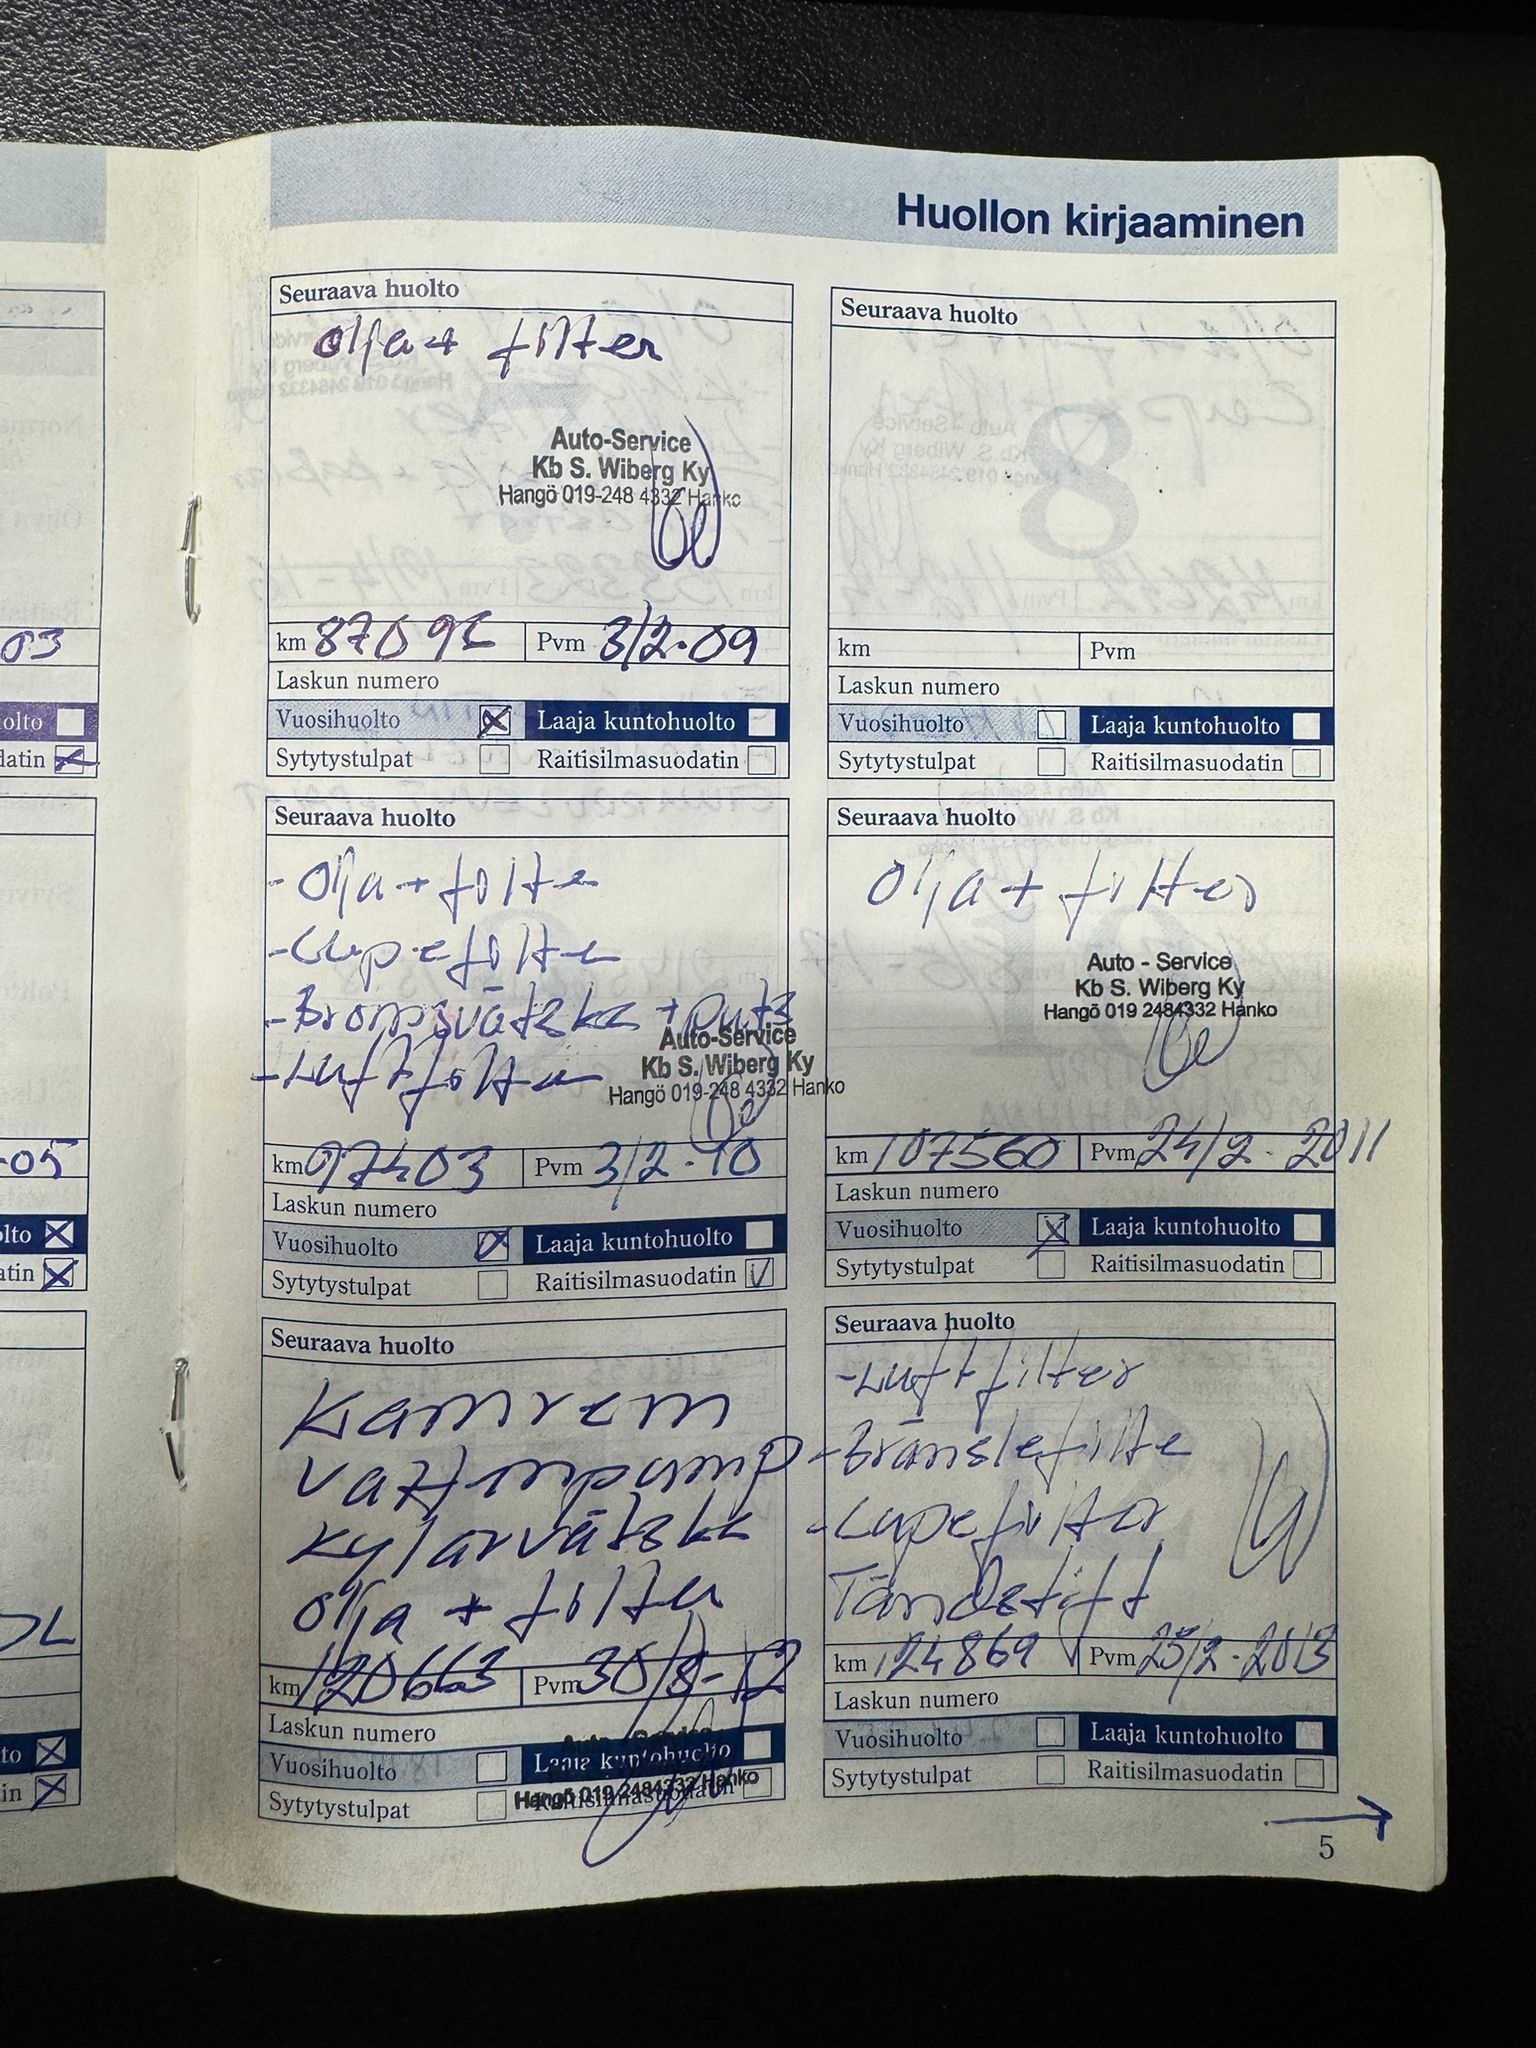 Huollon kirjaaminen
Seuraava huolto
Olja + filter
Auto-Service
Kb S. Wiberg Ky
Hangö 019-248 4332 Hanko
km Pvm 3/2-09
Laskun numero
Vuosihuolto Laaja kuntohuolto
Sytytystulpat Raitisilmasuodatin
Seuraava huolto
8
km Pvm
Laskun numero
Vuosihuolto Laaja kuntohuolto
Sytytystulpat Raitisilmasuodatin
Seuraava huolto
- Olja + filte
- Cupefilte
- Bromsvätska + puts
- Luftfilter
Auto-Service
Kb S. Wiberg Ky
Hangö 019-248 4332 Hanko
km 97403 Pvm 3/2-10
Laskun numero
Vuosihuolto Laaja kuntohuolto
Sytytystulpat Raitisilmasuodatin
Seuraava huolto
Olja + filter
Auto - Service
Kb S. Wiberg Ky
Hangö 019 2484332 Hanko
km 107560 Pvm 24/2. 2011
Laskun numero
Vuosihuolto Laaja kuntohuolto
Sytytystulpat Raitisilmasuodatin
Seuraava huolto
Kamrem
Vattenpump
Kylarvätska
Olja + filter
km 120663 Pvm 30/8-12
Laskun numero
Vuosihuolto Laaja kuntohuolto
Sytytystulpat Raitisilmasuodatin
Hangö 019 2484332 Hanko
Seuraava huolto
- Luftfilter
- Bränslefilte
- Cupefilter
Tändstift
km 124869 Pvm 25/2. 2013
Laskun numero
Vuosihuolto Laaja kuntohuolto
Sytytystulpat Raitisilmasuodatin
5
03
olto
datin
-05
olto
atin
DL
to
in